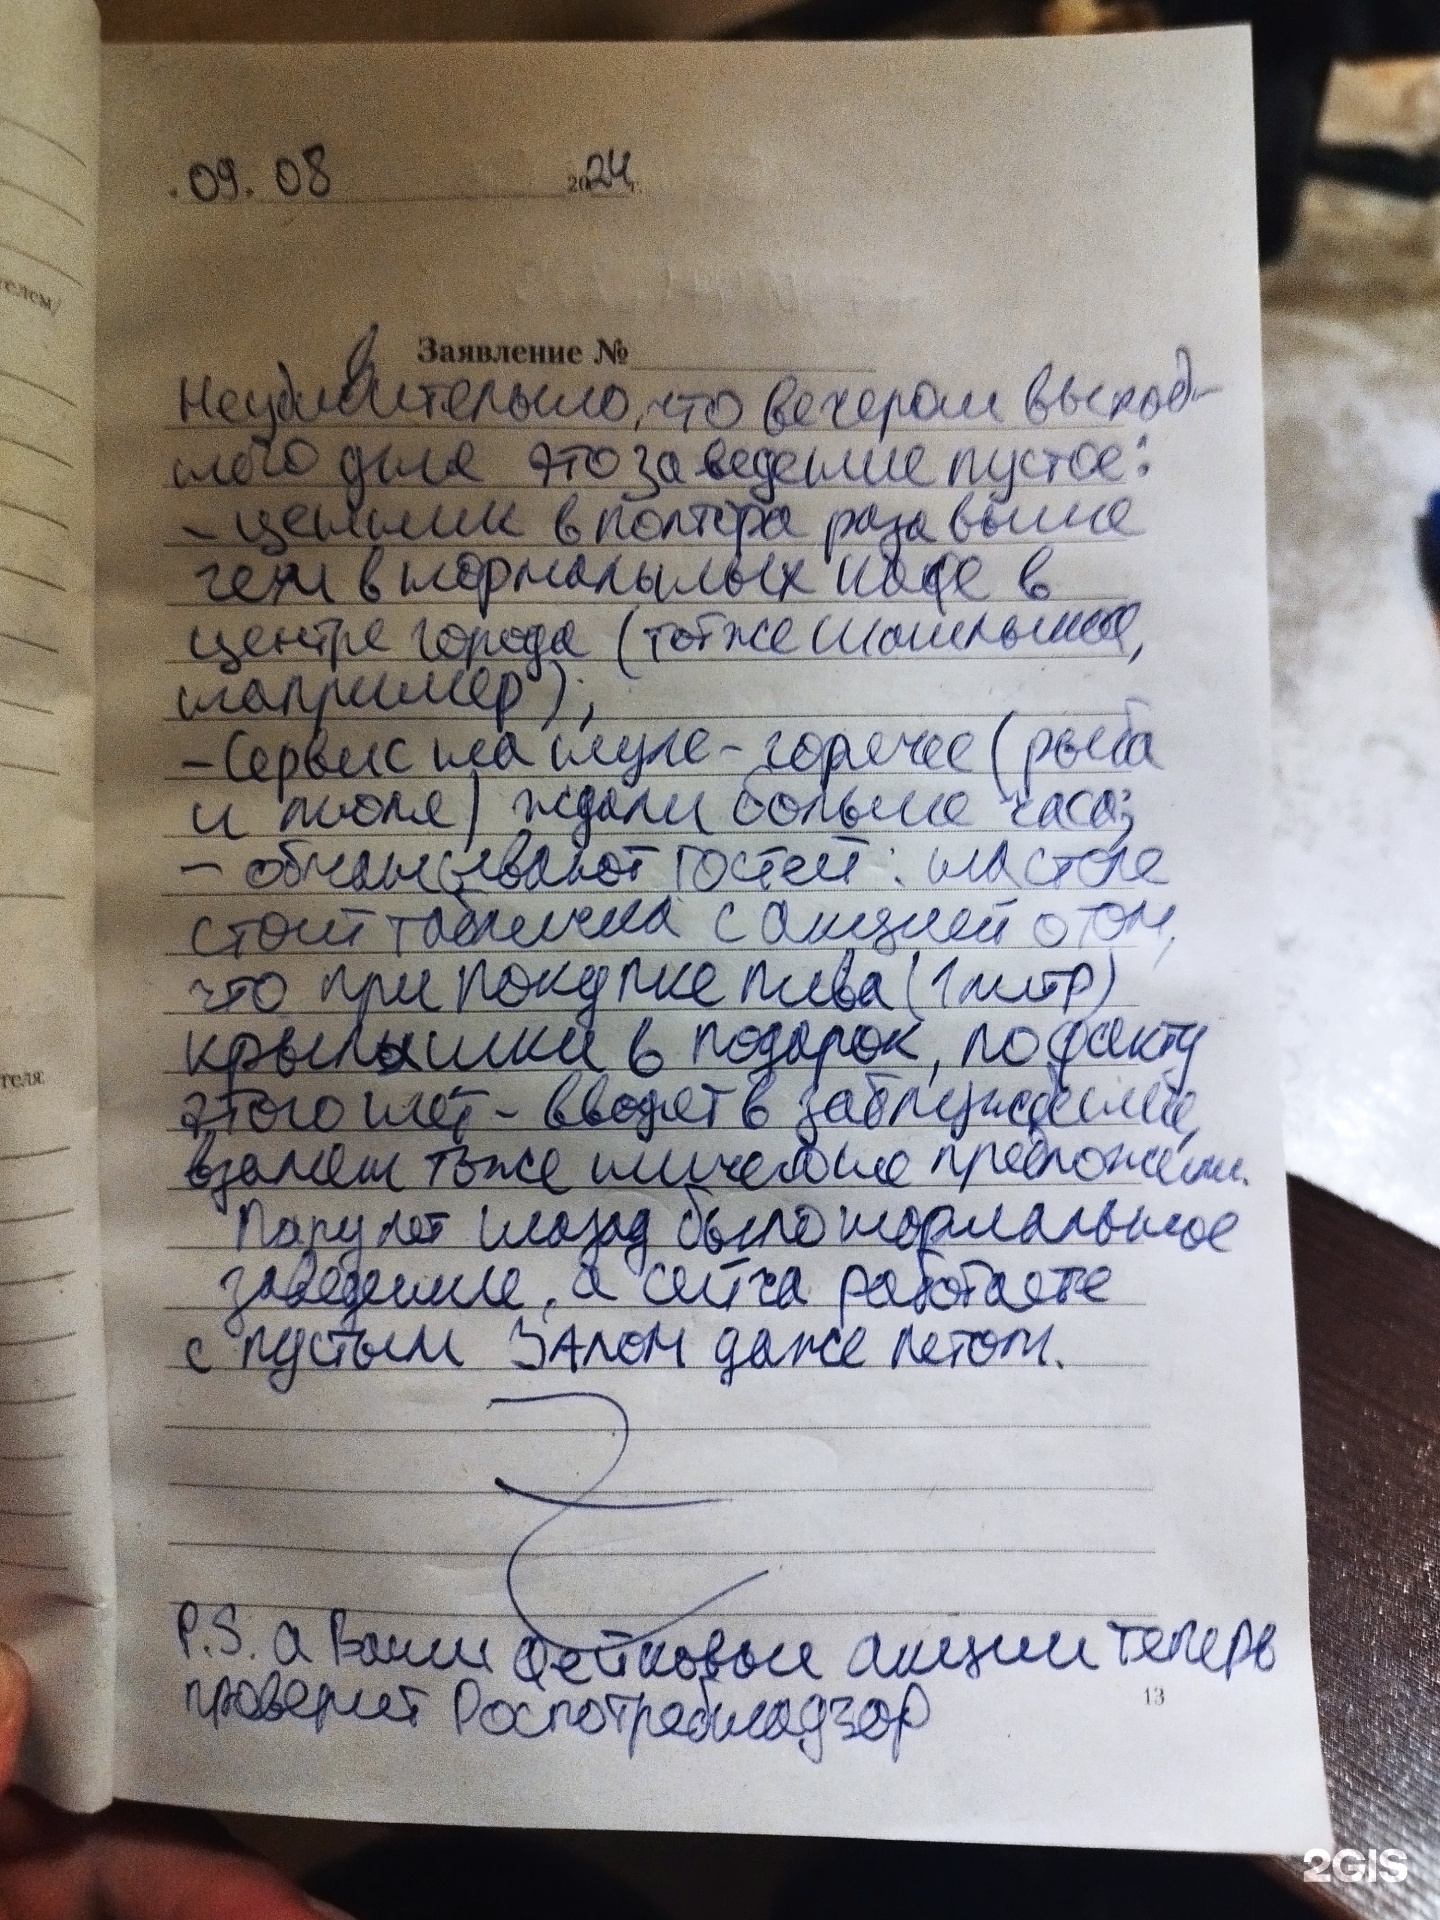 09.08 2024 г.
Заявление №
Неудивительно, что вечером выход-
ного дня это заведение пустое:
- ценник в полтора раза выше
чем в нормальных кафе в
центре города (тот же
например);
- Сервис на нуле - горячее (рыба
и люля) ждали больше часа;
- обманывают гостей: на столе
стоит табличка с акцией о том,
что при покупке пива (1 литр)
крылышки в подарок, по факту
этого нет - вводят в заблуждение,
взамен тоже ничего не предложили.
Пару лет назад было нормальное
заведение, а сейчас работаете
с пустым ЗАЛОМ даже летом.
P.S. а Ваши фейковые акции теперь
проверит Роспотребнадзор
13
телем/
теля
2GIS